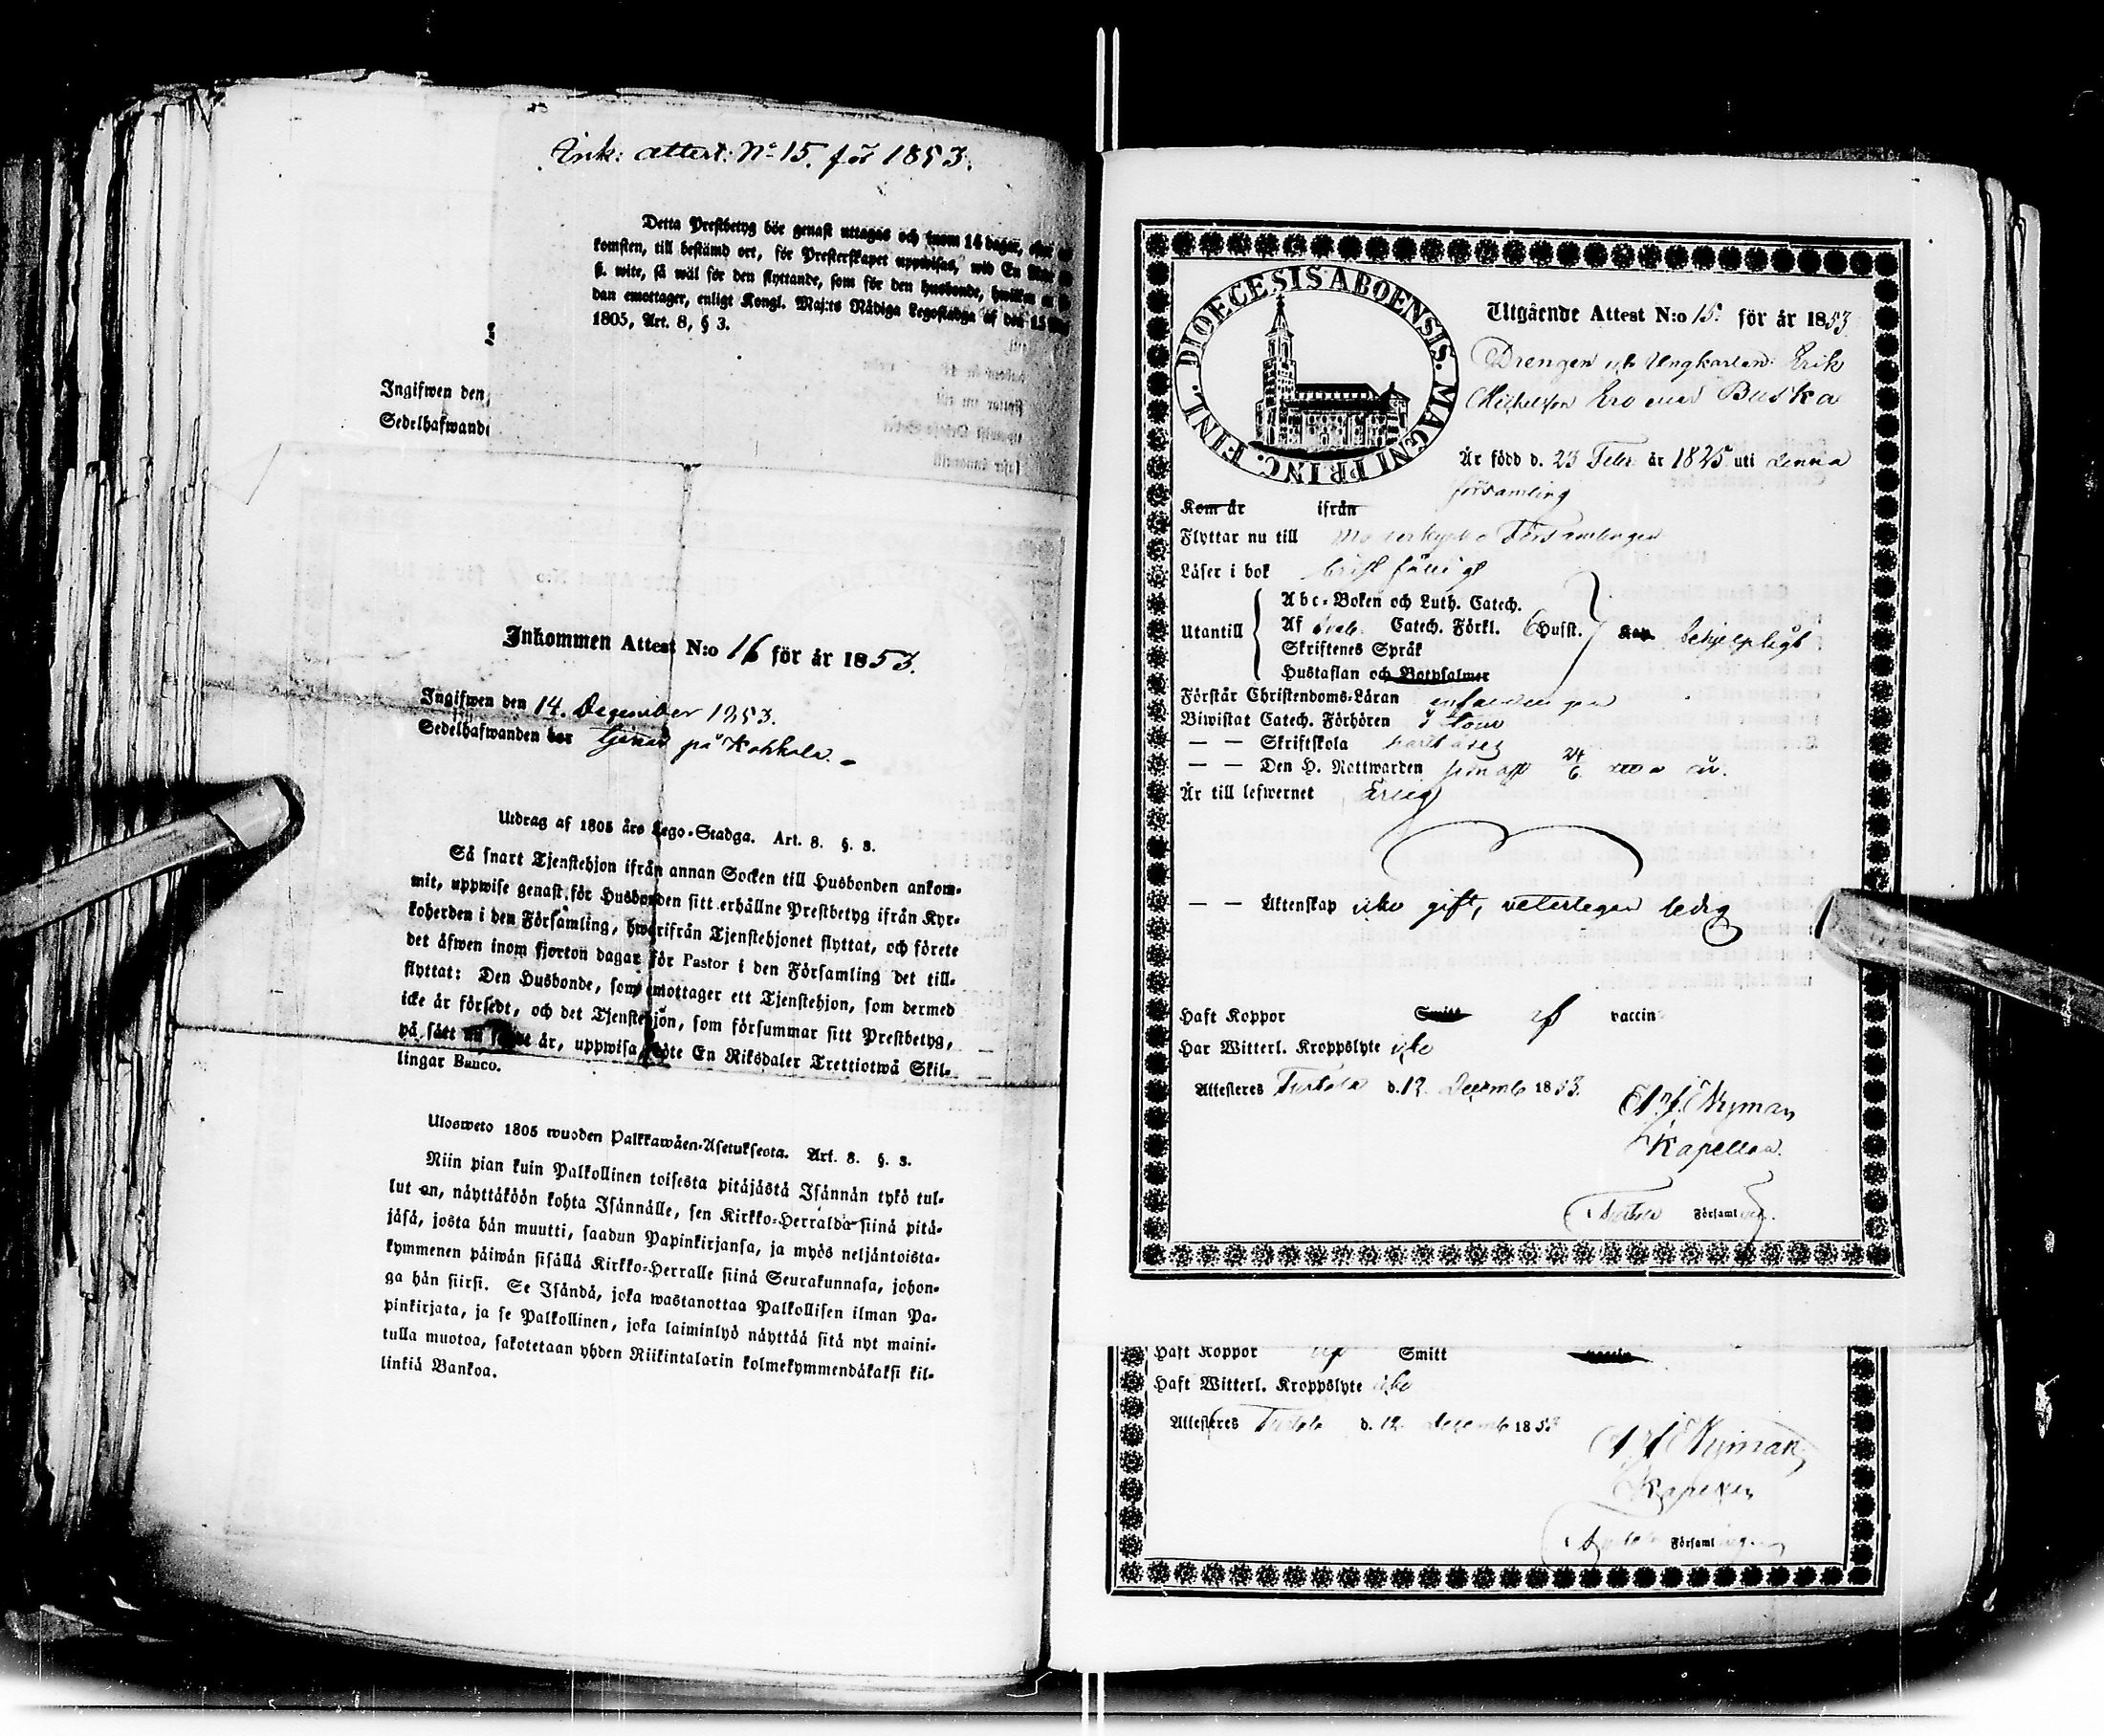 Ink: attest: No 15. för 1853.
Detta Prestbetyg bör genast uttagas och inom 14 dagar, efter
komsten, till bestämd ort, för Presterskapet uppwisas, wid En
ß. wite, så wäl för den flyttande, som för den husbonde, hwilken
dan emottager, enligt Kongl. Maj:ts Nådiga Legostadga af den 15
1805, Art. 8, § 3.
Ingifwen den
Sedelhafwand
Inkommen Attest N:o 16 för år 1853.
Ingifwen den 14. December 1853.
Sedelhafwanden bor tjenar på Kokkola.
Utdrag af 1805 års Lego-Stadga. Art. 8. §. 3.
Så snart Tjenstehjon ifrån annan Socken till Husbonden ankom-
mit, uppwise genast för Husbonden sitt erhållne Prestbetyg ifrån Kyr-
koherden i den Församling, hwarifrån Tjenstehjonet flyttat, och förete
det äfwen inom fjorton dagar för Pastor i den Församling det till-
flyttat: Den Husbonde, som emottager ett Tjenstehjon, som dermed
icke är försedt, och det Tjenstehjon, som försummar sitt Prestbetyg,
på sätt är, uppwisa, böte En Riksdaler Trettiotwå Skil-
lingar Banco.
Ulosweto 1805 wuoden Palkkawäen-Asetuksesta. Art. 8. §. 3.
Niin pian kuin Palkollinen toisesta pitäjästä Isännän tykö tul-
lut on, näyttäköön kohta Isännälle, sen Kirkko-Herralda siinä pitä-
jäsä, josta hän muutti, saadun Papinkirjansa, ja myös neljäntoista-
kymmenen päiwän sisällä Kirkko-Herralle siinä Seurakunnasa, johon-
ga hän siirsi. Se Isändä, joka wastanottaa Palkollisen ilman Pa-
pinkirjata, ja se Palkollinen, joka laiminlyö näyttää sitä nyt maini-
tulla muotoa, sakotetaan yhden Riikintalarin kolmekymmendäkaksi kil-
linkiä Bankoa.
DIOECESIS ABOENSIS. MAGNI PRINC. FINL.
Utgående Attest N:o 15. för år 1853
Drengen och Ungkarlen Erik
Michelsson Buska
Är född d. 23 Febr. år 1825 uti denna
församling
Kom år ifrån
Flyttar nu till Moderkyrko Församlingen
Läser i bok
Utantill
Abc-Boken och Luth. Catech.
Af Catech. Förkl. 6 Husst.
Skriftenes Språk
Hustaflan och Botpsalmer
Kap. behjelpligt
Förstår Christendoms-Läran
Biwistat Catech. Förhören
— — Skriftskola
— — Den H. Nattwarden 24/6 år.
Är till lefwernet ärlig
— — Äktenskap icke gift, veterligen ledig
Haft Koppor Smitt af vaccin
Har Witterl. Kroppslyte icke
Attesteres Turtola d. 12. Decemb 1853.
Nyman
Kapellan.
Turtola Församling.
Haft Koppor af Smitt vaccin
Haft Witterl. Kroppslyte icke
Attesteres Turtola d. 12. Decemb 1853
Nyman
Kapellan
Turtola Församling.